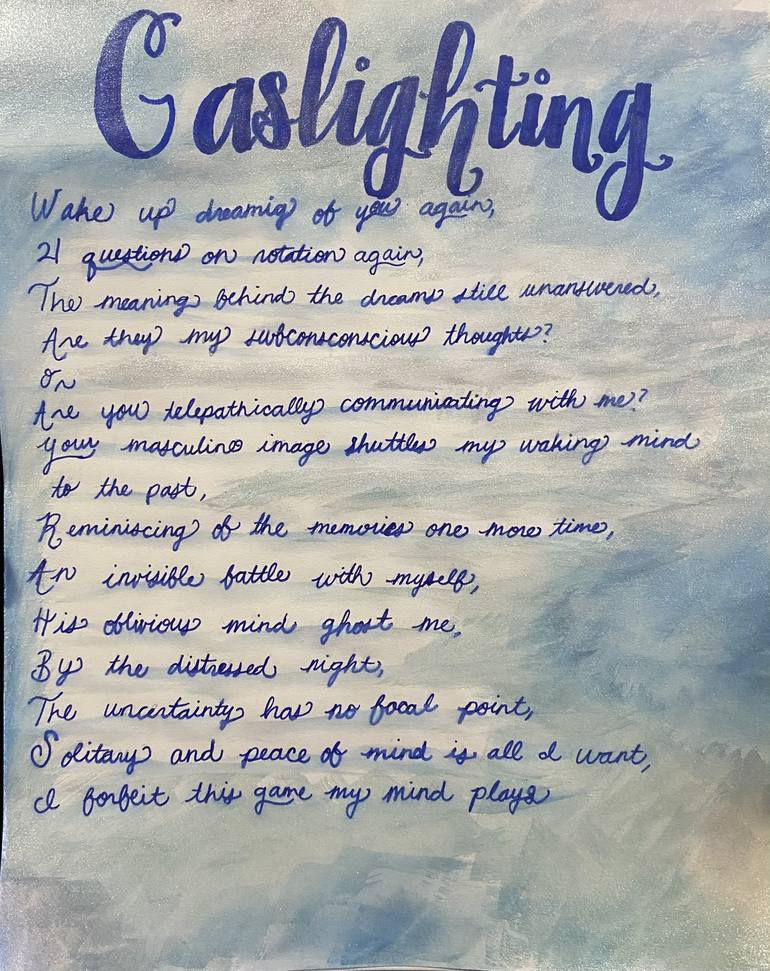 Gaslighting
Wake up dreamig of you again,
21 questions on rotation again,
The meaning behind the dreams still unanswered,
Are they my subconsconscious thoughts?
Or
Are you telepathically communicating with me?
Your masculine image shuttles my waking mind
to the past,
Reminiscing of the memories one more time,
An invisible battle with myself,
His oblivious mind ghost me,
By the distressed night,
The uncertainty has no focal point,
Solitary and peace of mind is all I want,
I forfeit this game my mind plays